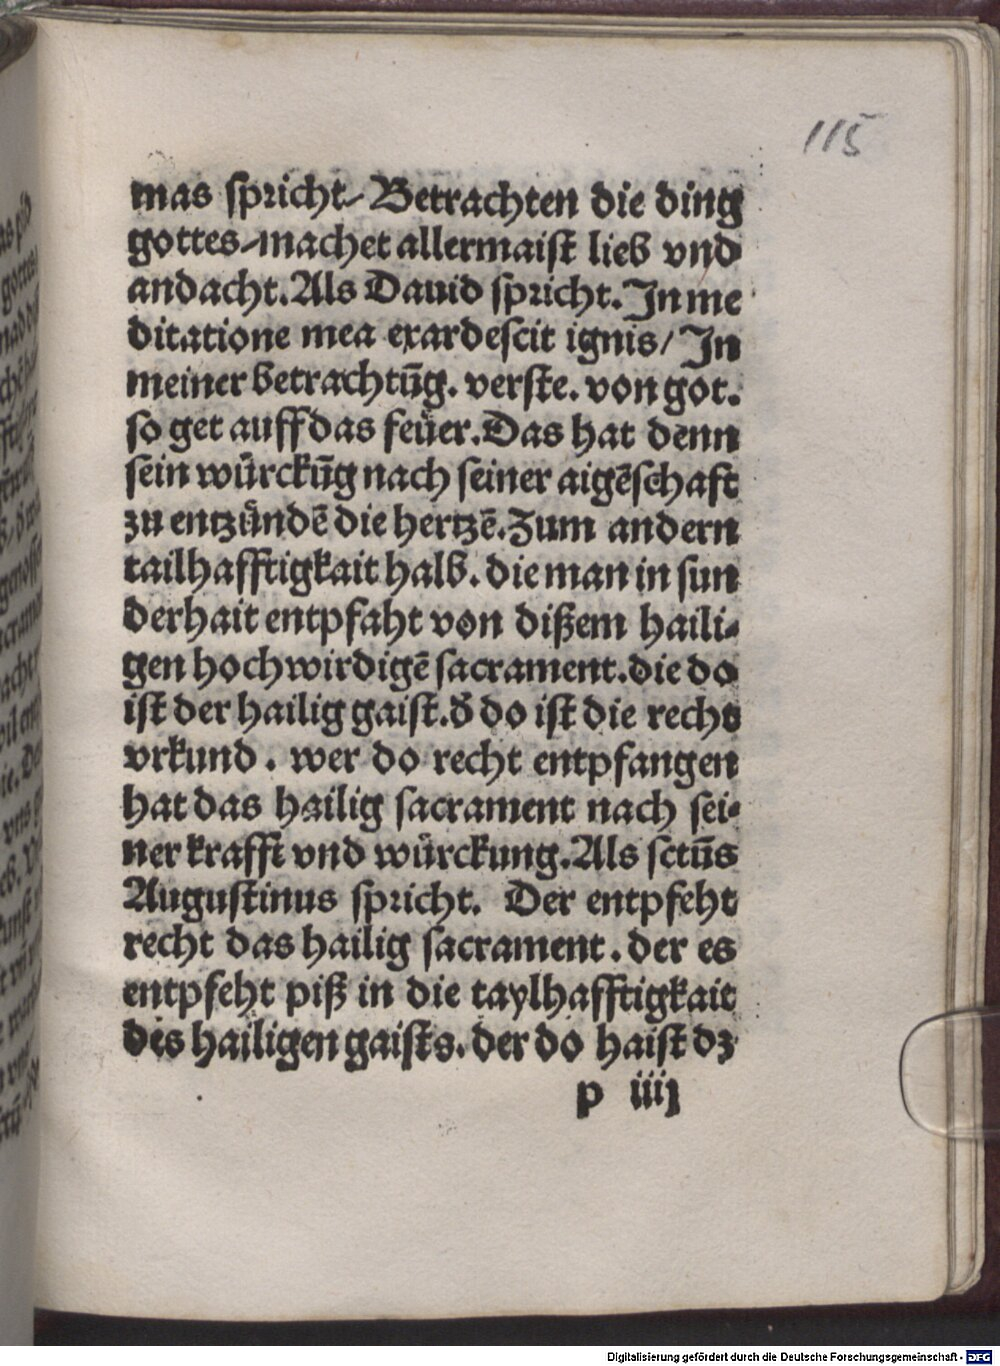 115
mas spricht/ Betrachten die ding
gottes/machet allermaist lieb vnd
andacht. Als Dauid spricht. In me
ditatione mea exardescit ignis/ In
meiner betrachtūg. verste. von got.
so get auff das feüer. Das hat denn
sein würckūg nach seiner aigēschaft
zu entzündē die hertzē. Zum andern
tailhafftigkait halb. die man in sun
derhait entpfaht von dißem haili-
gen hochwirdigē sacrament. die do
ist der hailig gaist. d̄ do ist die recht
vrkund. wer do recht entpfangen
hat das hailig sacrament nach sei-
ner krafft vnd würckung. Als sctūs
Augustinus spricht. Der entpfeht
recht das hailig sacrament. der es
entpfeht piß in die taylhafftigkait
des hailigen gaists. der do haist dz
p iiij
Digitalisierung gefördert durch die Deutsche Forschungsgemeinschaft - DFG